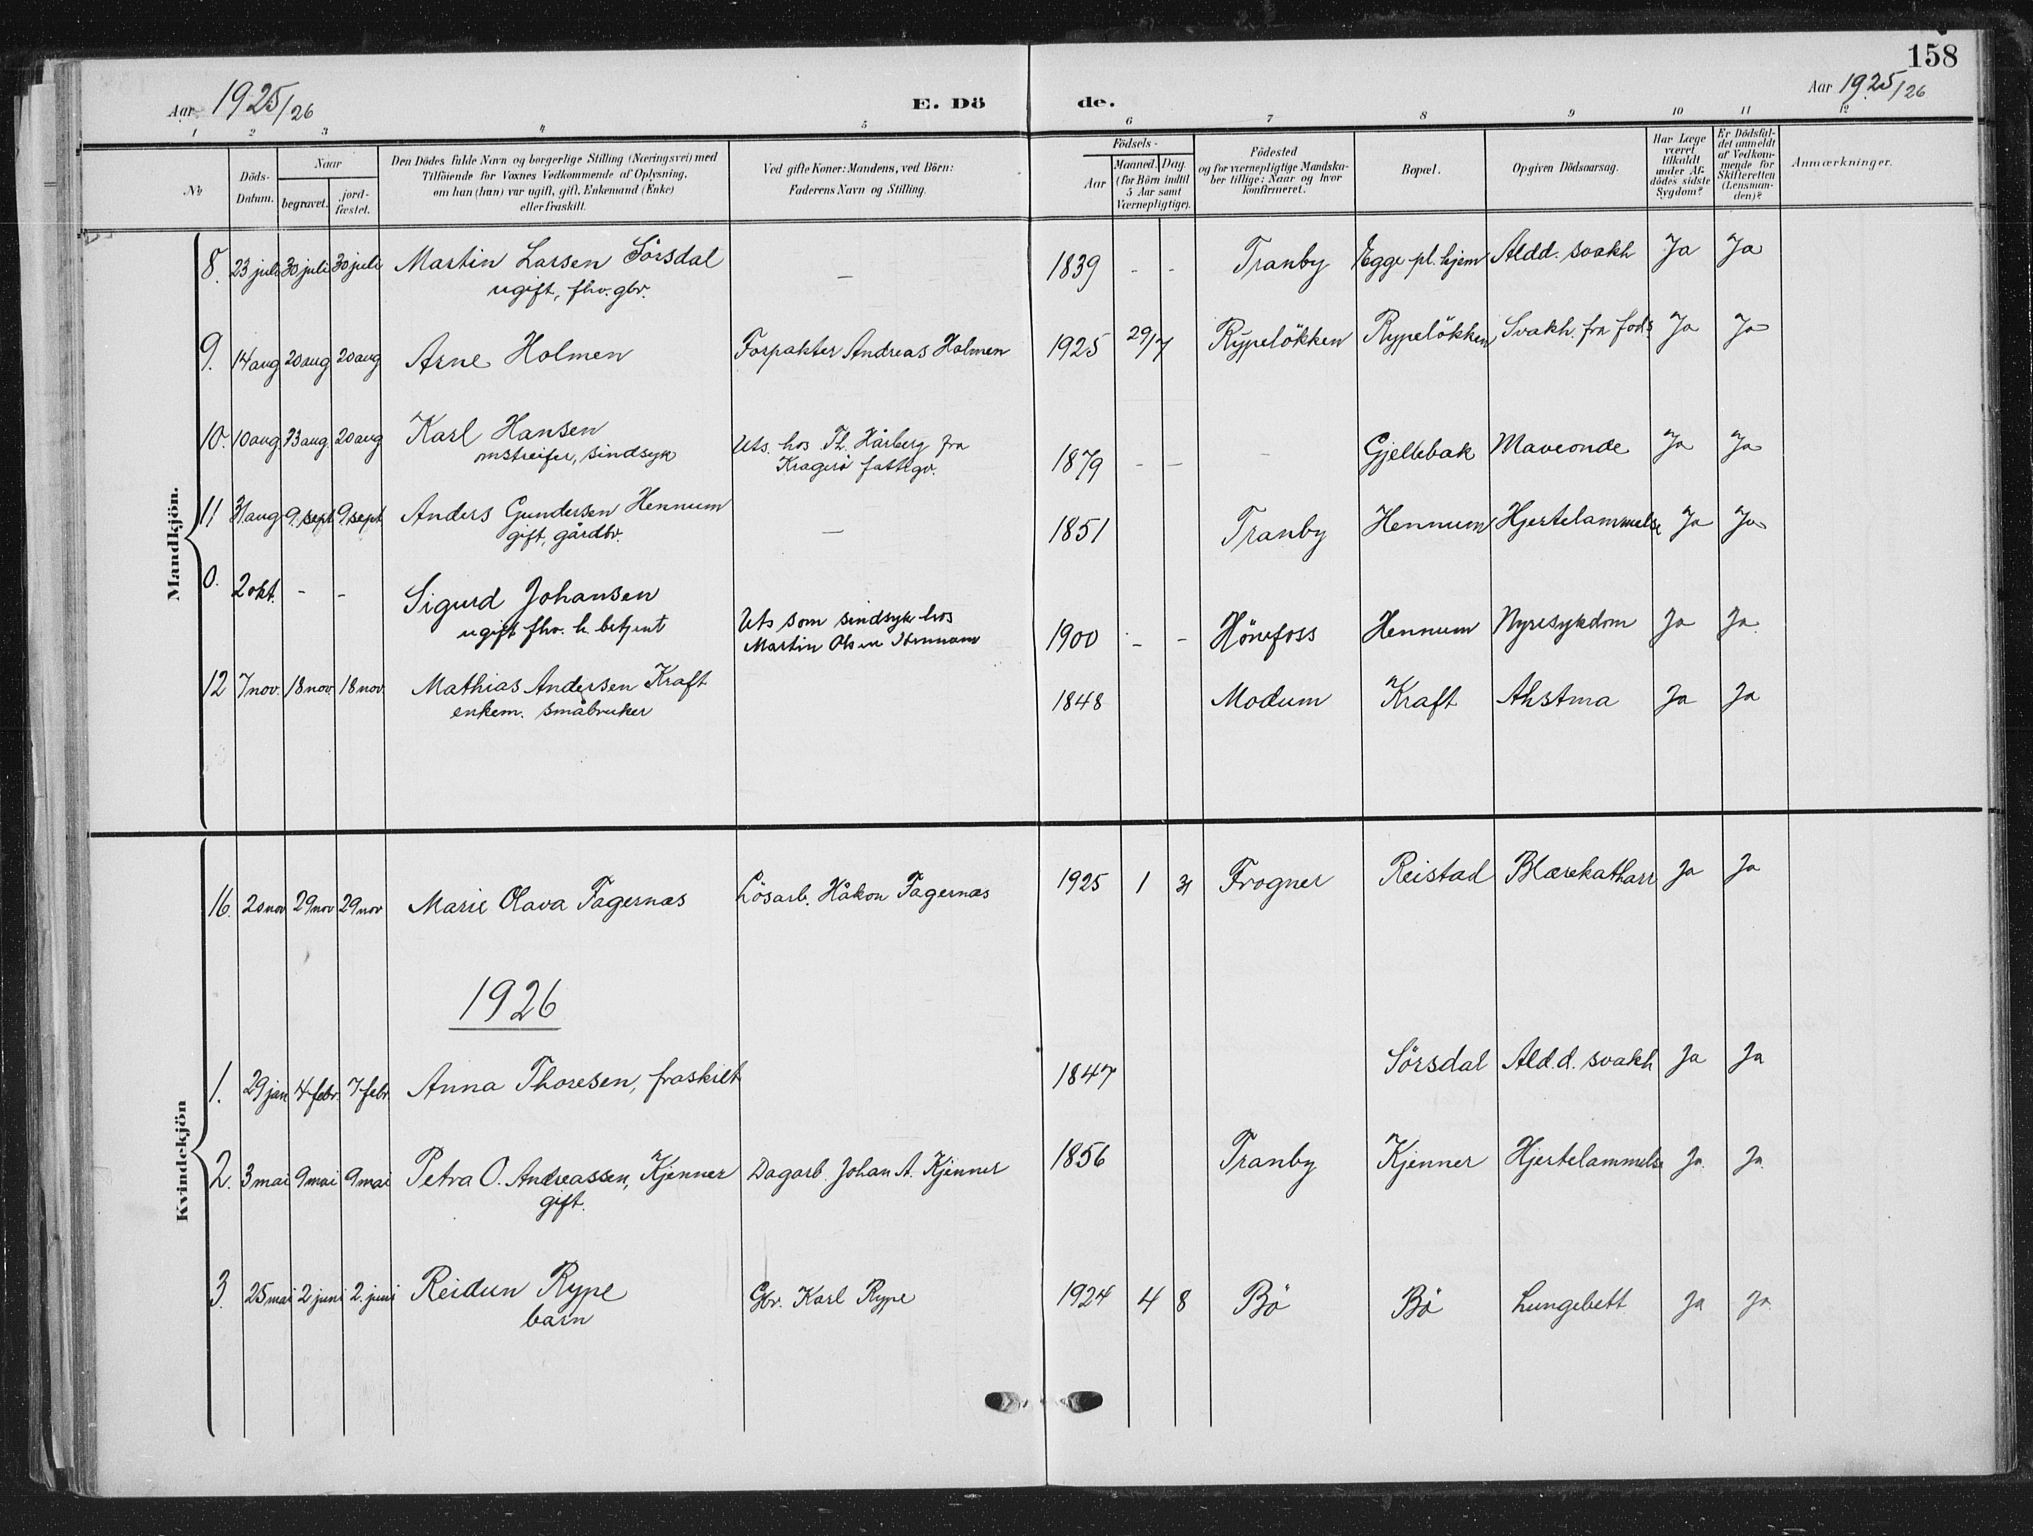 158
Aar 1925/26
E. Döde.
Aar 1925/26
1 2 3 4 5 6 7 8 9 10 11 12
No
Döds-Datum.
Naar
begravet.
jord-fæstet.
Den Dödes fulde Navn og borgerlige Stilling (Næringsvei) med
Tilföiende for Voxnes Vedkommende af Oplysning,
om han (hun) var ugift, gift, Enkemand (Enke)
eller fraskilt.
Ved gifte Koner: Mandens, ved Börn:
Faderens Navn og Stilling.
Födsels-
Aar
Maaned. Dag.
(for Börn indtil
5 Aar samt
Værnepligtige).
Födested
og for værnepligtige Mandska-
ber tillige: Naar og hvor
konfirmeret.
Bopæl.
Opgiven Dödsaarsag.
Har Læge
været
tilkaldt
under Af-
dödes sidste
Sygdom?
Er Dödsfal-
det anmeldt
af Vedkom-
mende for
Skifteretten
(Lensman-
den)?
Anmærkninger.
Mandkjön.
8. 23 juli 30 juli 30 juli Martin Larsen Sörsdal — 1839 - - Tranby Egge pl. hjem Aldd. svakh Ja Ja
ugift, fhv. gbr.
9. 14 aug 20 aug 20 aug Arne Holmen Forpakter Andreas Holmen 1925 29/7 Rypelökken Rypelökken Svakh. fra föds. Ja Ja
10. 10 aug 13 aug. 20 aug Karl Hansen Uts. hos Th. Hårberg fra 1879 - - - Gjellebæk Maveonde Ja Ja
omstreifer, sindsyk Kragerö fattigv.
11 31 aug 9. sept 9. sept Anders Gundersen Hennum — 1851 Tranby Hennum Hjertelammelse Ja Ja
gift, gårdbr.
0. 2 okt. - - Sigurd Johansen Uts som sindsyk hos 1900 - - Hönefoss Hennum Nyresykdom Ja Ja.
ugift fhv. h. betjent Martin Olsen Hennum
12 7 nov. 18 nov. 18 nov. Mathias Andersen Kraft 1848 Modum Kraft Ahstma Ja Ja
enkem. småbruker
Kvindekjön
16. 20 nov 29 nov 29 nov Marie Olava Fagernæs Lösarb. Håkon Fagernæs 1925 1 31 Frogner Reistad Blærekatharr Ja Ja
1926
1. 29 jan 4 febr. 7 febr. Anna Thoresen, fraskilt 1847 Sörsdal Ald.d. svakh Ja Ja
2. 3 mai 9 mai 9 mai Petra O. Andreassen, Kjenner Dagarb. Johan A. Kjenner 1856 Tranby Kjenner Hjertelammelse Ja. Ja.
gift.
3. 25 mai 2 juni 2. juni Reidun Rype Gbr. Karl Rype 1924 4 8 Bö Bö Lungebett. Ja Ja.
barn